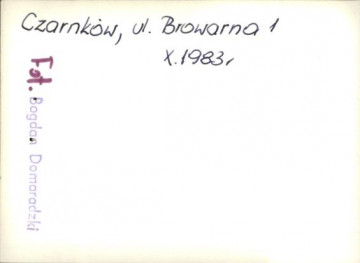 Czarnków, ul. Browarna 1
X.1983r
Fot. Bogdan Domaradzki